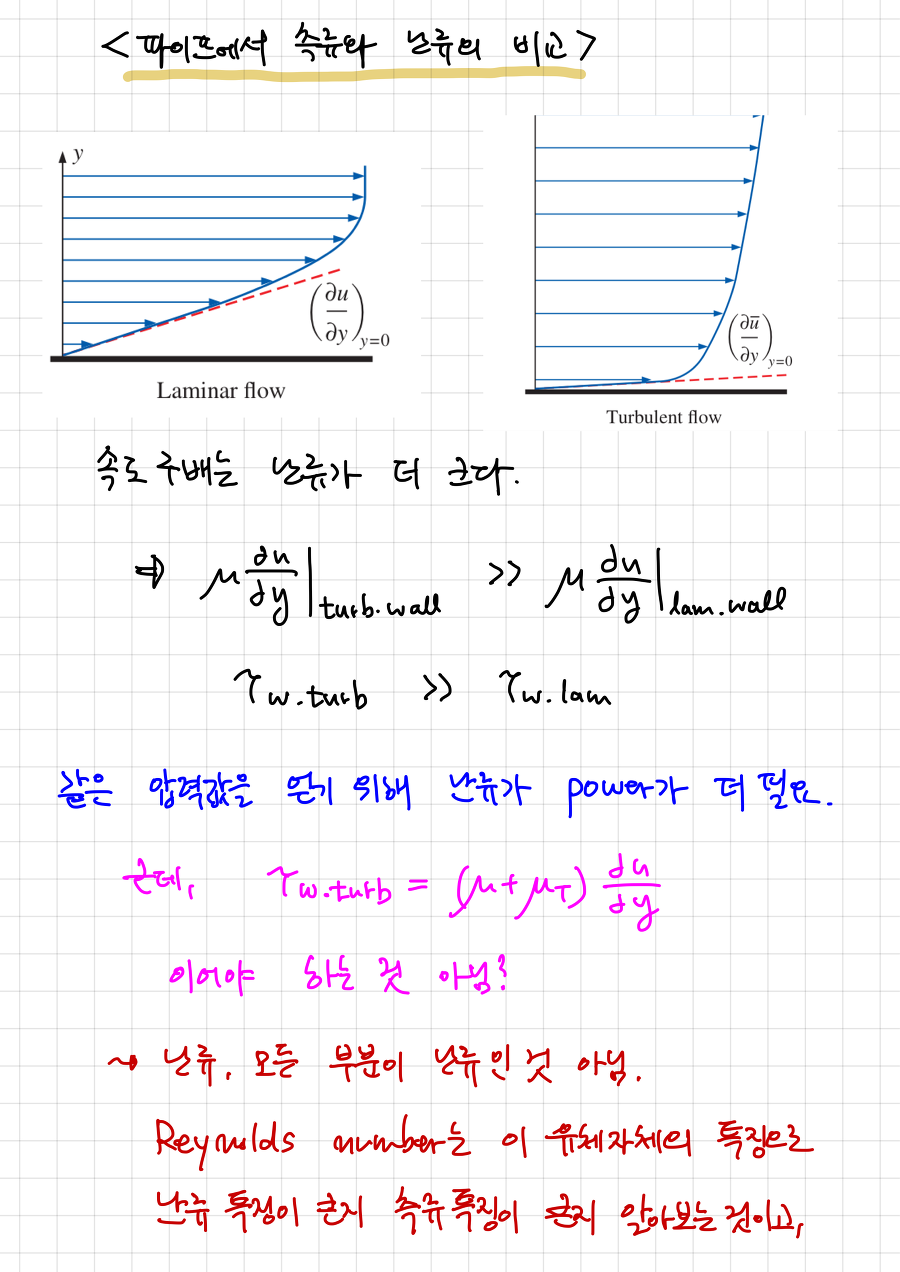 <파이프에서 층류와 난류의 비교>
y
(∂u/∂y)y=0
Laminar flow
(∂ū/∂y)y=0
Turbulent flow
속도구배는 난류가 더 크다.
⇒ μ du/dy |turb.wall >> μ du/dy |lam.wall
τw.turb >> τw.lam
같은 압력값을 얻기 위해 난류가 power가 더 필요.
근데, τw.turb = (μ+μT) du/dy
이어야 하는 것 아님?
→ 난류, 모든 부분이 난류인 것 아님.
Reynolds number는 이 유체자체의 특징으로
난류 특징이 큰지 층류특징이 큰지 알아보는 것이고,